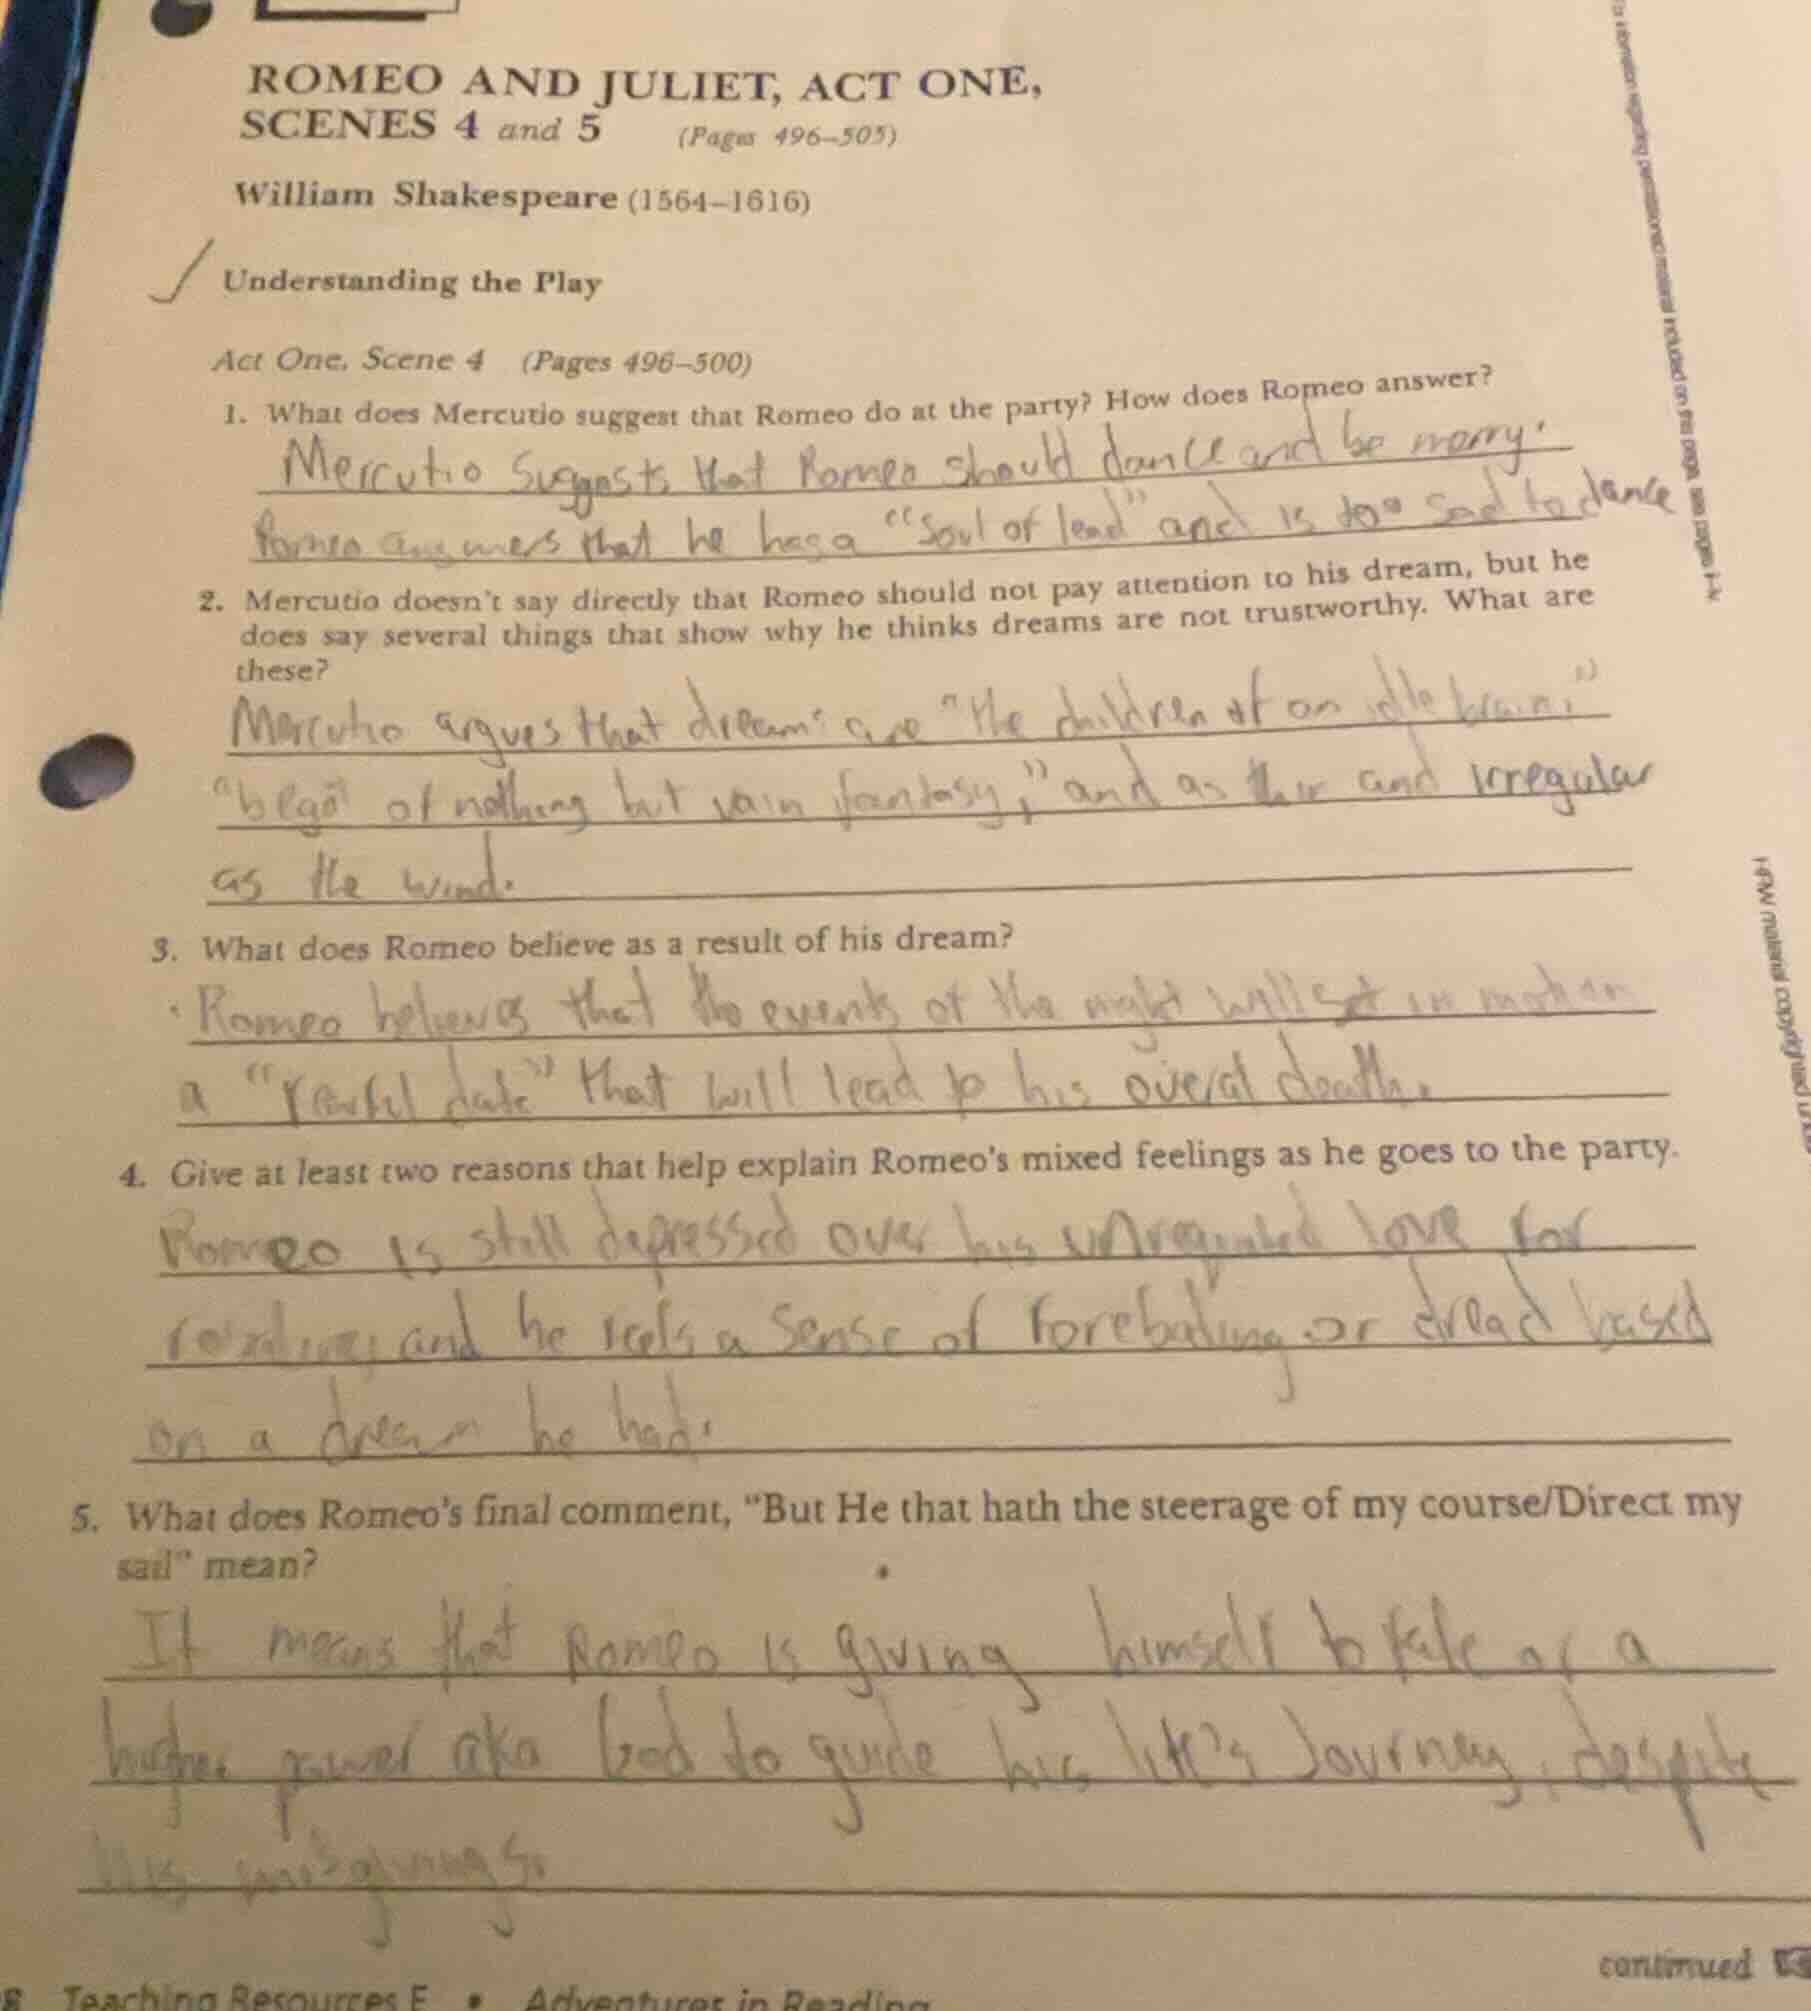 ROMEO AND JULIET, ACT ONE,
SCENES 4 and 5 (Pages 496–505)
William Shakespeare (1564–1616)
Understanding the Play
Act One, Scene 4 (Pages 496–500)
1. What does Mercutio suggest that Romeo do at the party? How does Romeo answer?
Mercutio suggests that Romeo should dance and be merry.
Romeo answers that he has a "soul of lead" and is too sad to dance
2. Mercutio doesn't say directly that Romeo should not pay attention to his dream, but he
does say several things that show why he thinks dreams are not trustworthy. What are
these?
Mercutio argues that dreams are "the children of an idle brain,"
"begot of nothing but vain fantasy," and as thin and irregular
as the wind.
3. What does Romeo believe as a result of his dream?
Romeo believes that the events of the night will set in motion
a "fearful date" that will lead to his overal death.
4. Give at least two reasons that help explain Romeo's mixed feelings as he goes to the party.
Romeo is still depressed over his unrequited love for
and he feels a sense of foreboding or dread based
on a dream he had.
5. What does Romeo's final comment, "But He that hath the steerage of my course/Direct my
sail" mean?
It means that Romeo is giving himself to fate or a
higher power aka God to guide his life's Journey, despite
his misgivings.
continued
Teaching Resources E • Adventures in Reading
For information regarding permissions on material included on this page, see pages i–iv
HRW material copyrighted